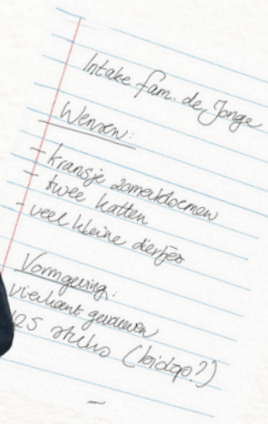 Intake fam. de Jonge
Wensen:
- kransje zomerbloemen
- twee katten
- veel kleine diertjes
Vormgeving:
vierkant gevouwen
125 stuks (biotop?)